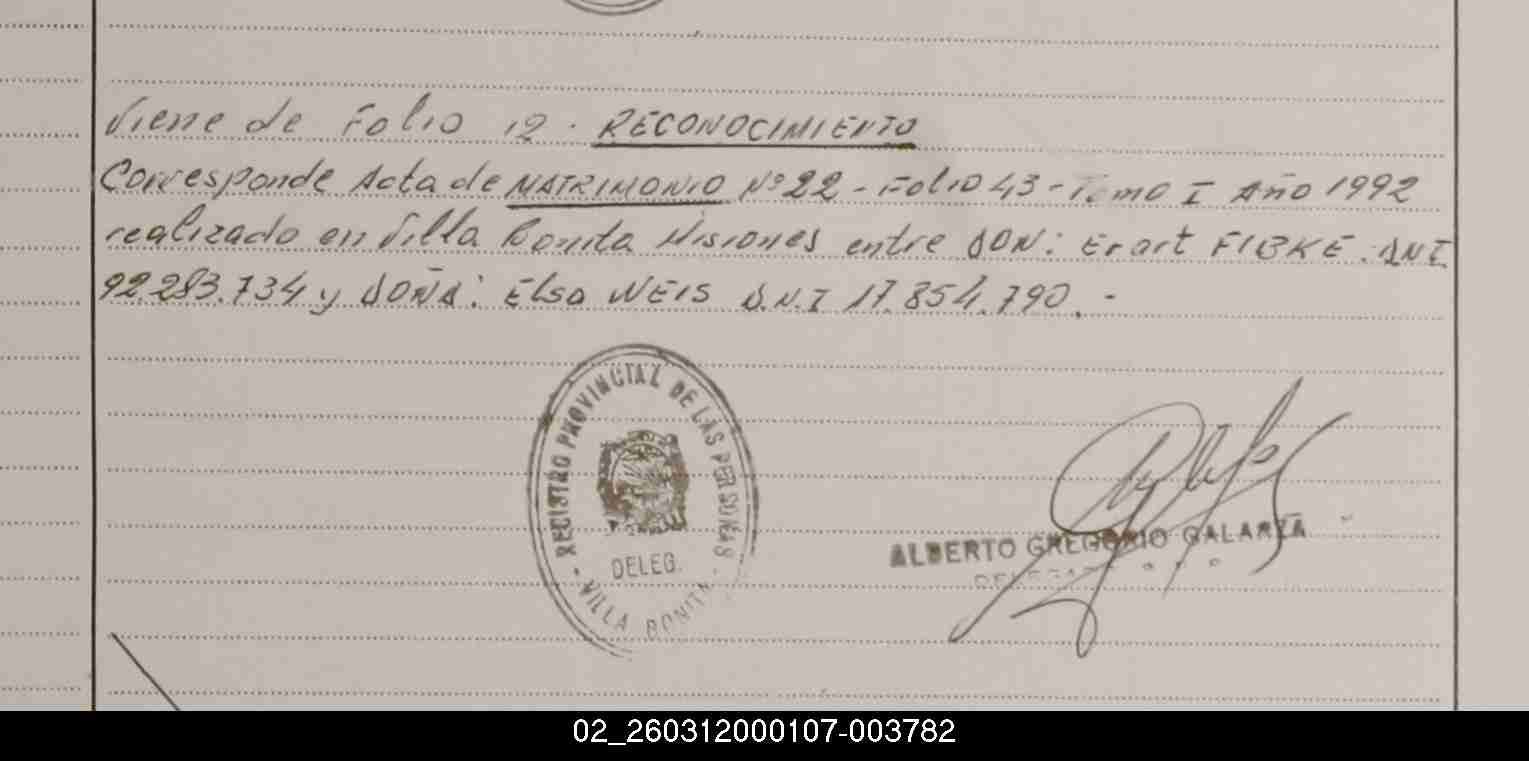 Viene de Folio 12. RECONOCIMIENTO
Corresponde Acta de MATRIMONIO Nº 22 - Folio 43 - Tomo I Año 1992
realizado en Villa Bonita Misiones entre DON: Erart FIBKE. DNI
92.283.734 y DOÑA: Elsa NEIS D.N.I 17.854.790. -
REGISTRO PROVINCIAL DE LAS PERSONAS
DELEG.
- VILLA BONITA -
ALBERTO GREGORIO GALARZA
02_260312000107-003782